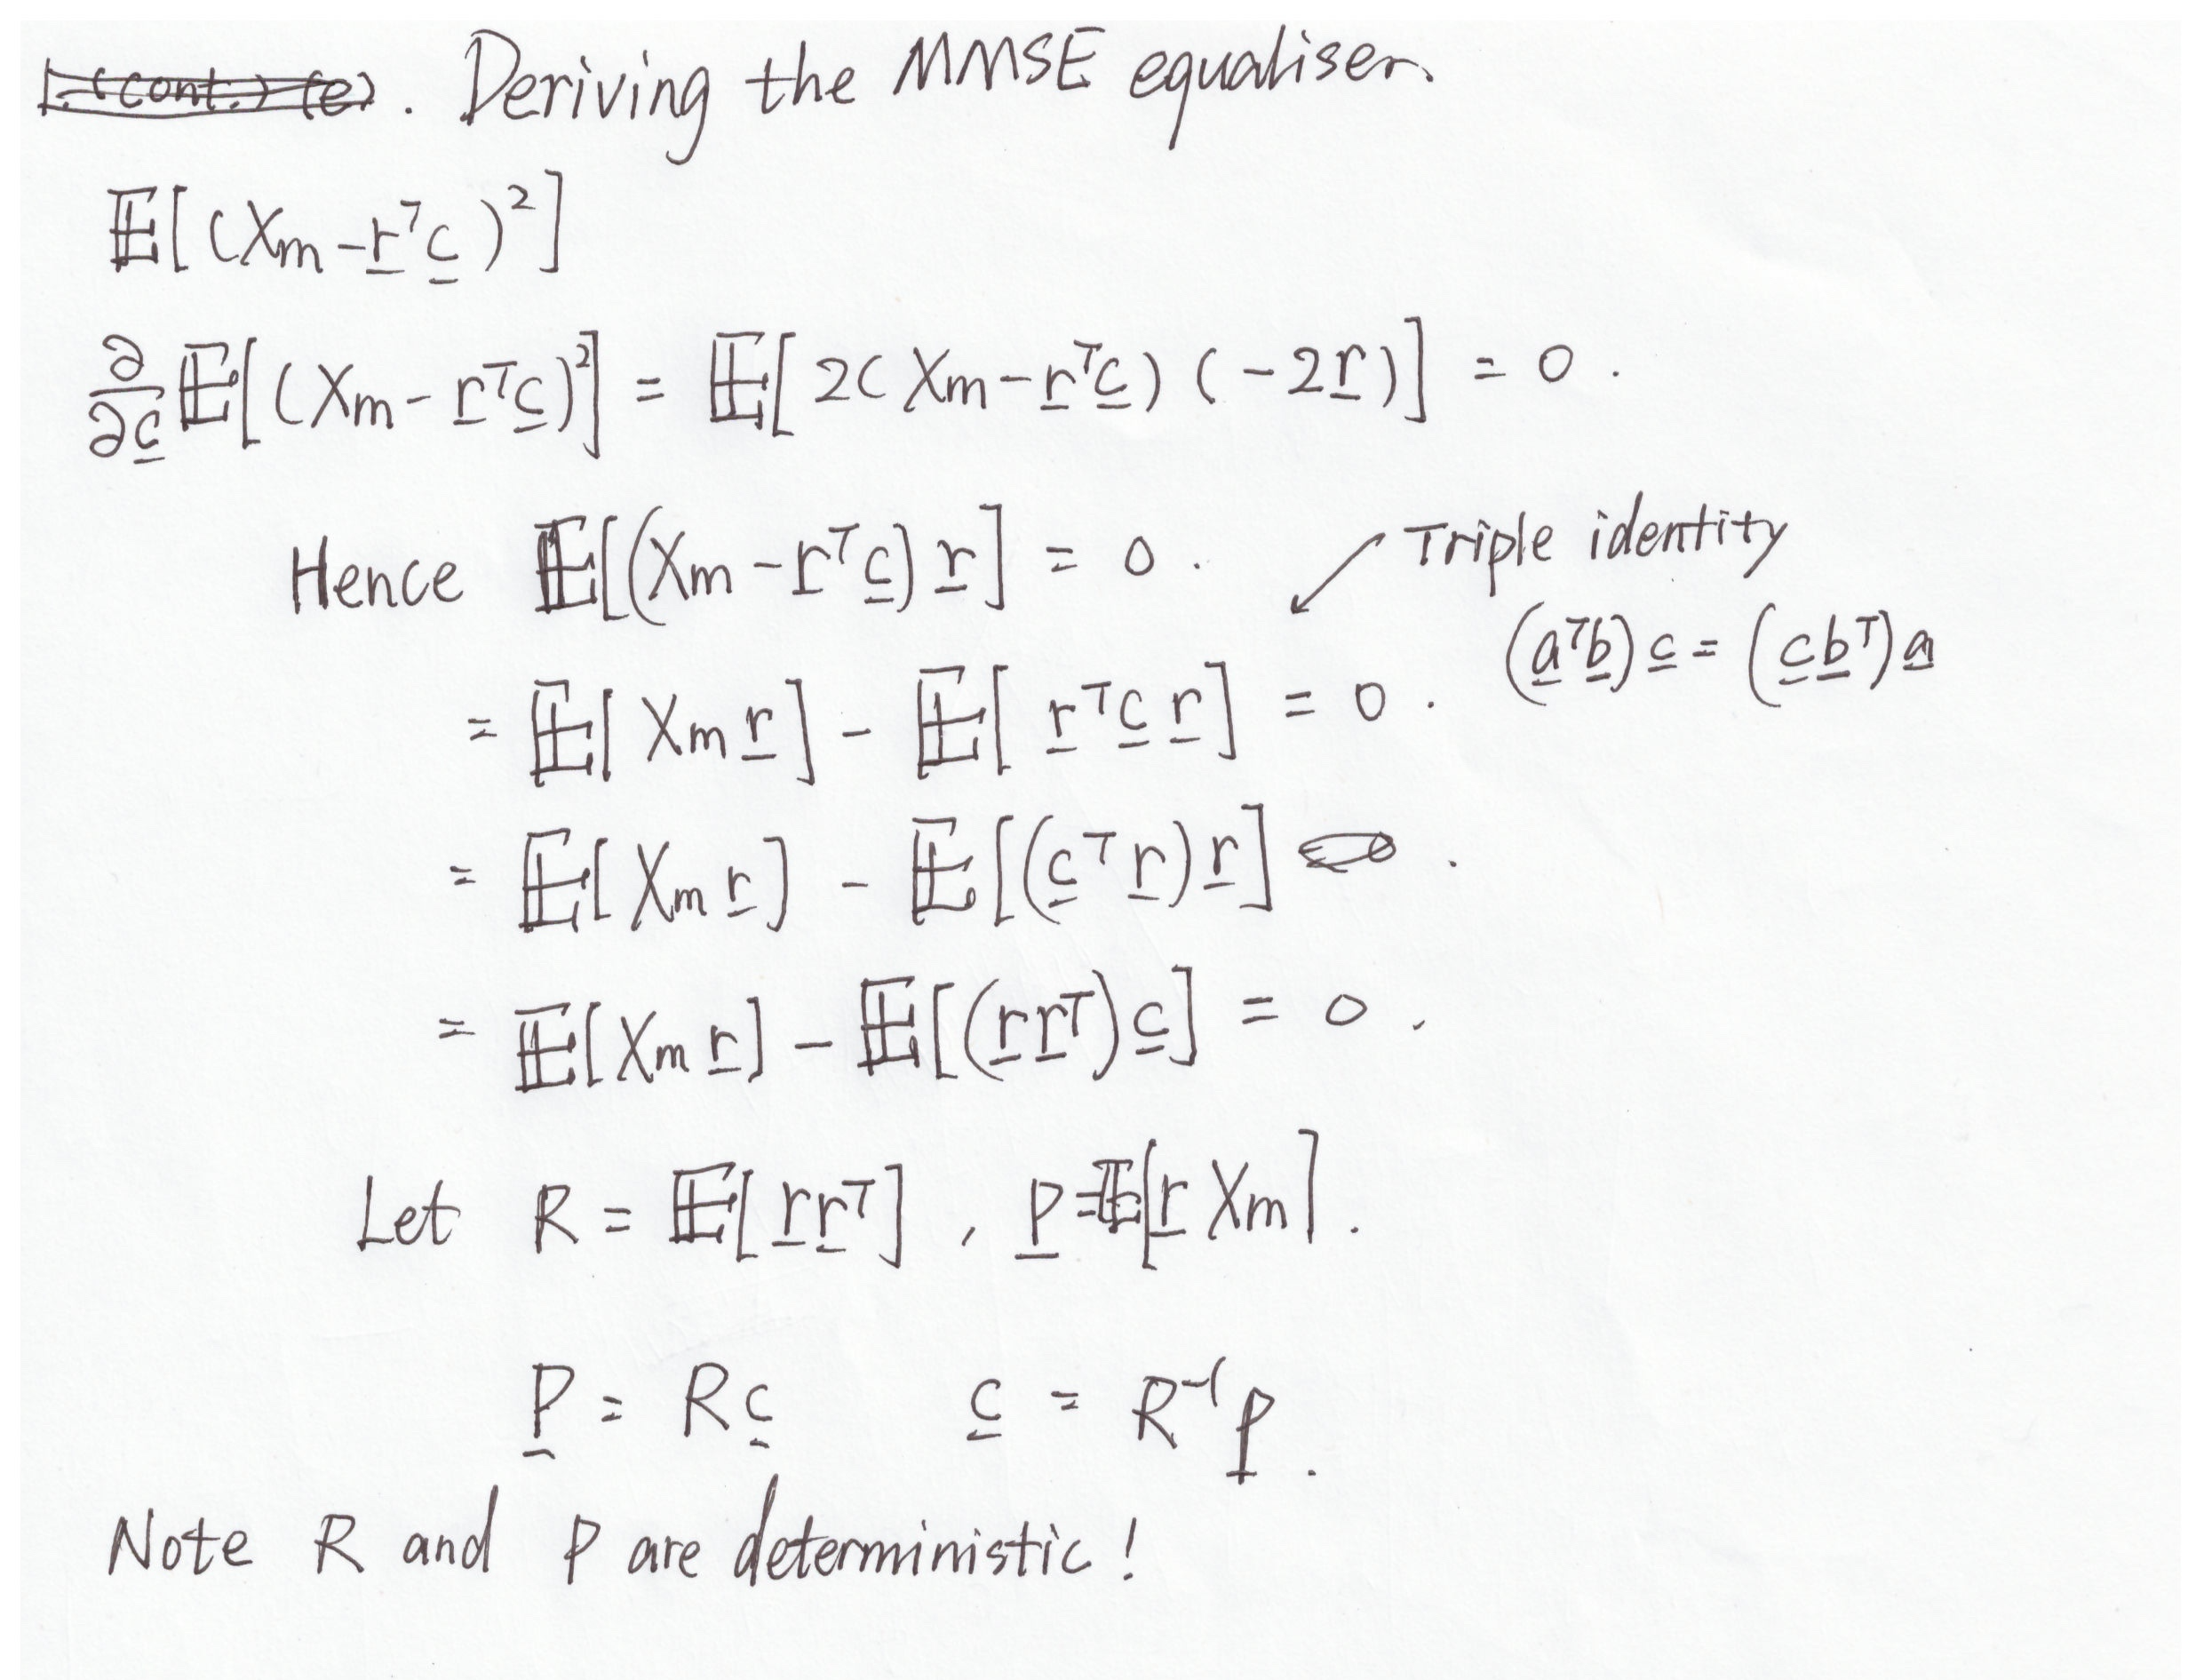 1. (cont.) (e). Deriving the MMSE equaliser.
𝔼[(Xm - r̲ᵀc̲)²]
∂/∂c̲ 𝔼[(Xm - r̲ᵀc̲)²] = 𝔼[2(Xm - r̲ᵀc̲)(-2r̲)] = 0.
Hence 𝔼[(Xm - r̲ᵀc̲) r̲] = 0.
Triple identity
(a̲ᵀb̲)c̲ = (c̲b̲ᵀ)a̲
= 𝔼[Xm r̲] - 𝔼[r̲ᵀc̲ r̲] = 0.
= 𝔼[Xm r̲] - 𝔼[(c̲ᵀr̲)r̲].
= 𝔼[Xm r̲] - 𝔼[(r̲r̲ᵀ)c̲] = 0.
Let R = 𝔼[r̲r̲ᵀ], p̲ = 𝔼[r̲ Xm].
p̲ = Rc̲ c̲ = R⁻¹p̲.
Note R and p are deterministic!